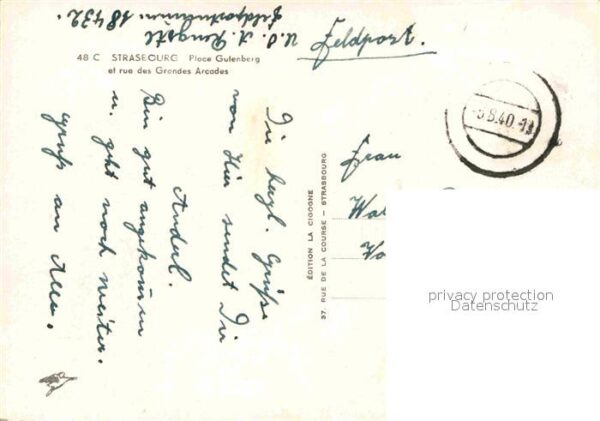 U.O. A. Rengstl
Feldpostnummer 18432.
Feldpost.
48 C STRASBOURG Place Gutenberg
et rue des Grandes Arcades
Die herzl. Grüße
von Hier sendet Dir
Anderl.
Bin gut angekommen
u. geht noch weiter.
Gruß an Alle.
ÉDITION LA CIGOGNE
37, RUE DE LA COURSE – STRASBOURG
-5.8.40.-
Frau
privacy protection
Datenschutz